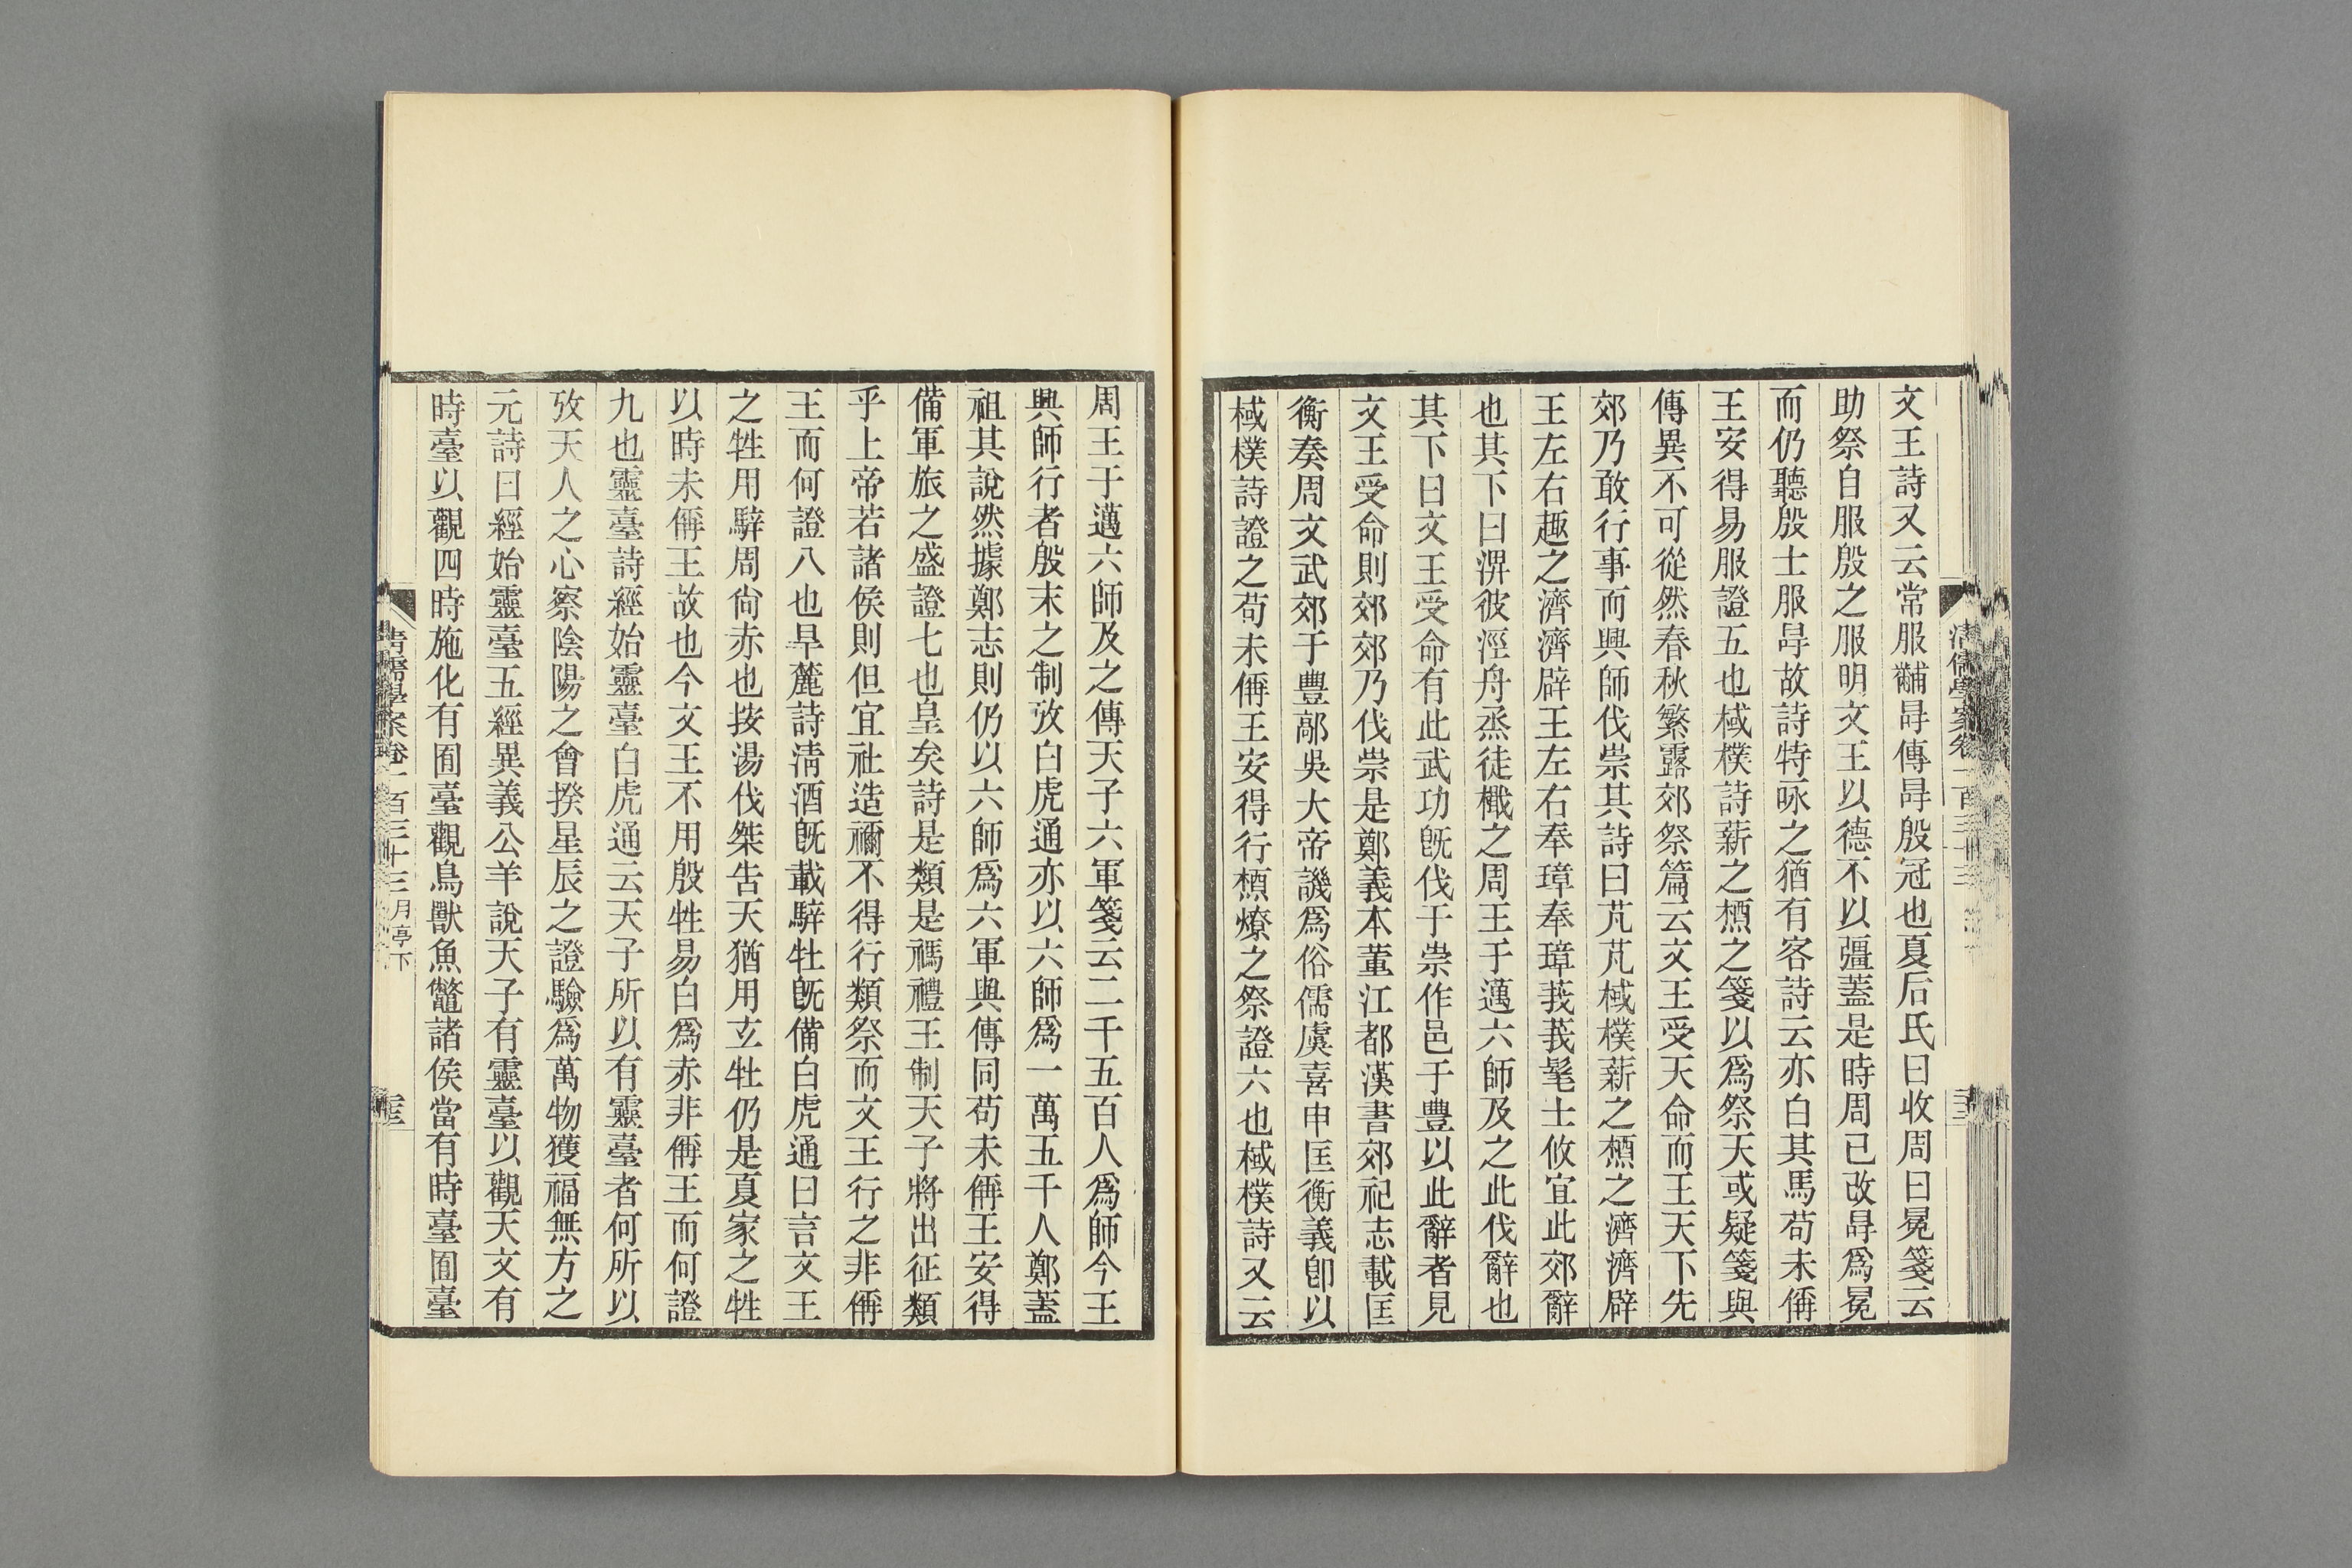 文王詩又云常服黼冔傳冔殷冠也夏后氏曰收周曰冕箋云
助祭自服殷之服明文王以德不以彊蓋是時周已改冔爲冕
而仍聽殷士服冔故詩特詠之猶有客詩云亦白其馬苟未偁
王安得易服證五也棫樸詩薪之槱之箋以爲祭天或疑箋與
傳異不可從然春秋繁露郊祭篇云文王受天命而王天下先
郊乃敢行事而興師伐崇其詩曰芃芃棫樸薪之槱之濟濟辟
王左右趣之濟濟辟王左右奉璋奉璋莪莪髦士攸宜此郊辭
也其下曰淠彼涇舟烝徒檝之周王于邁六師及之此伐辭也
其下曰文王受命有此武功旣伐于崇作邑于豐以此辭者見
文王受命則郊郊乃伐崇是鄭義本董江都漢書郊祀志載匡
衡奏周文武郊于豐鄗吳大帝譏爲俗儒虞喜申匡衡義卽以
棫樸詩證之苟未偁王安得行槱燎之祭證六也棫樸詩又云
周王于邁六師及之傳天子六軍箋云二千五百人爲師今王
興師行者殷末之制攷白虎通亦以六師爲一萬五千人鄭蓋
祖其說然據鄭志則仍以六師爲六軍與傳同苟未偁王安得
備軍旅之盛證七也皇矣詩是類是禡禮王制天子將出征類
乎上帝若諸侯則但宜社造禰不得行類祭而文王行之非偁
王而何證八也旱麓詩淸酒旣載騂牡旣備白虎通曰言文王
之牲用騂周尙赤也按湯伐桀告天猶用玄牡仍是夏家之牲
以時未偁王故也今文王不用殷牲易白爲赤非偁王而何證
九也靈臺詩經始靈臺白虎通云天子所以有靈臺者何所以
攷天人之心察陰陽之會揆星辰之證驗爲萬物獲福無方之
元詩曰經始靈臺五經異義公羊說天子有靈臺以觀天文有
時臺以觀四時施化有囿臺觀鳥獸魚鼈諸侯當有時臺囿臺
清儒學案卷一百三十三月亭下